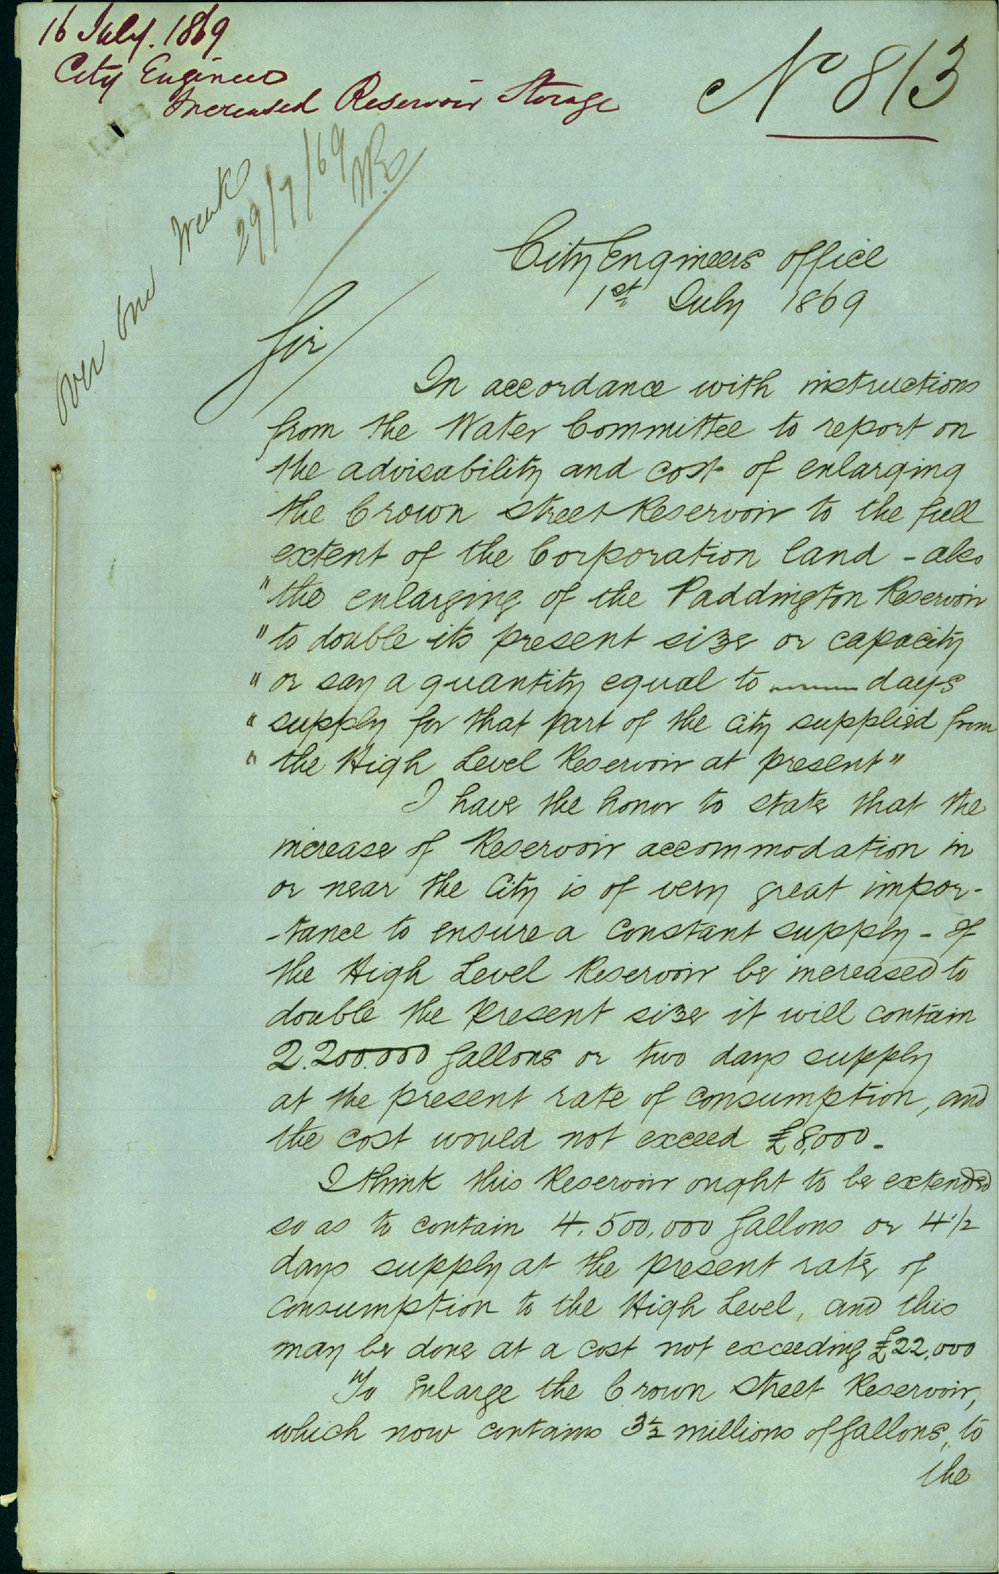 16 July. 1869
City Engineer
Increased Reservoir Storage
No 813
over one week
29/7/69
City Engineers office
1st July 1869
Sir
In accordance with instructions
from the Water Committee to report on
the advisability and cost of enlarging
the Crown Street Reservoir to the full
extent of the Corporation land - also
"the enlarging of the Paddington Reservoir
"to double its present size or capacity
"or say a quantity equal to ~~~~ days
"supply for that part of the City supplied from
"the High Level Reservoir at present"
I have the honor to state that the
increase of Reservoir accommodation in
or near the City is of very great impor-
-tance to ensure a constant supply - If
the High Level Reservoir be increased to
double the present size it will contain
2.200.000 gallons or two days supply
at the present rate of consumption, and
the cost would not exceed £8,000 -
I think this Reservoir ought to be extended
so as to contain 4.500,000 gallons or 4 1/2
days supply at the present rate of
consumption to the High Level, and this
may be done at a cost not exceeding £22,000
To Enlarge the Crown Street Reservoir,
which now contains 3½ millions of gallons, to
the